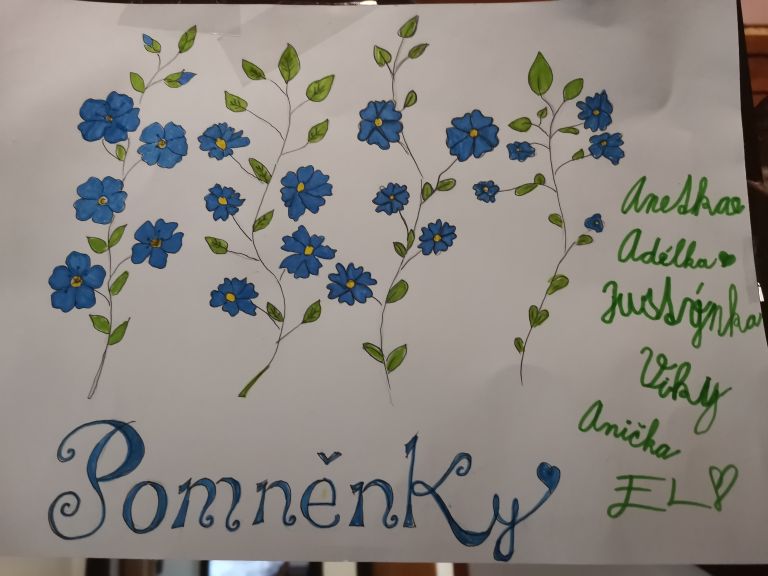 Anetka
Adélka
Justýnka
Viky
Anička
EL
Pomněnky